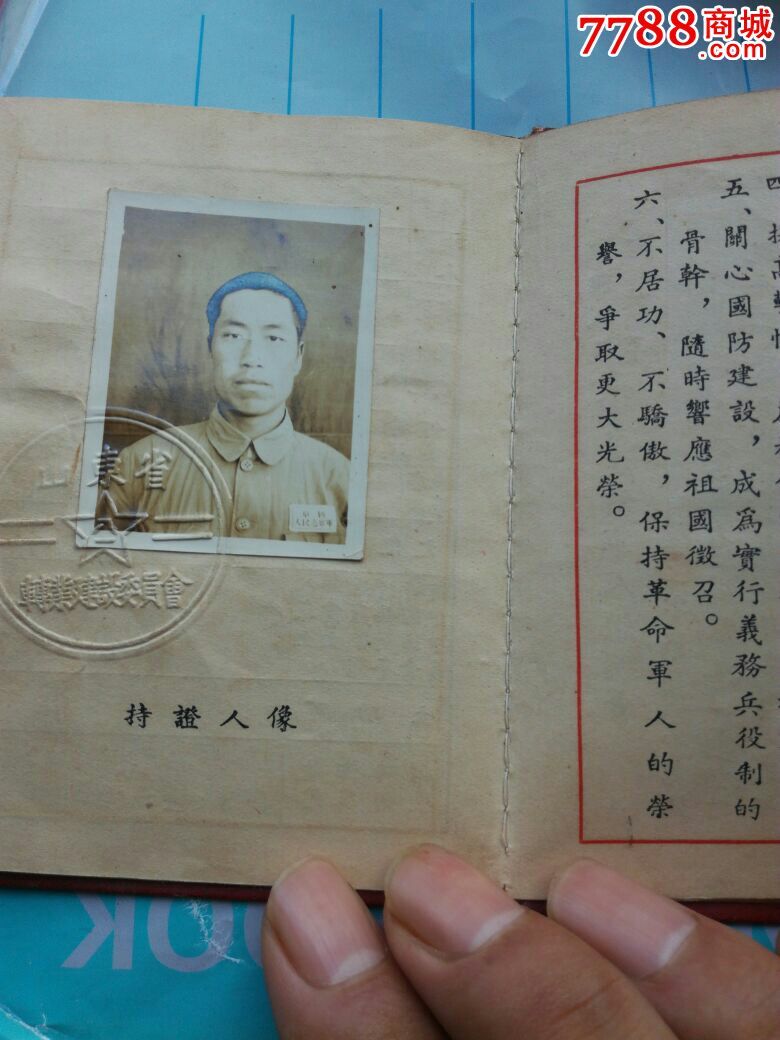 7788商城
.com
五、關心國防建設，成爲實行義務兵役制的
骨幹，隨時響應祖國徵召。
六、不居功、不驕傲，保持革命軍人的榮
譽，爭取更大光榮。
山東省
轉業建設委員會
持證人像
OOK